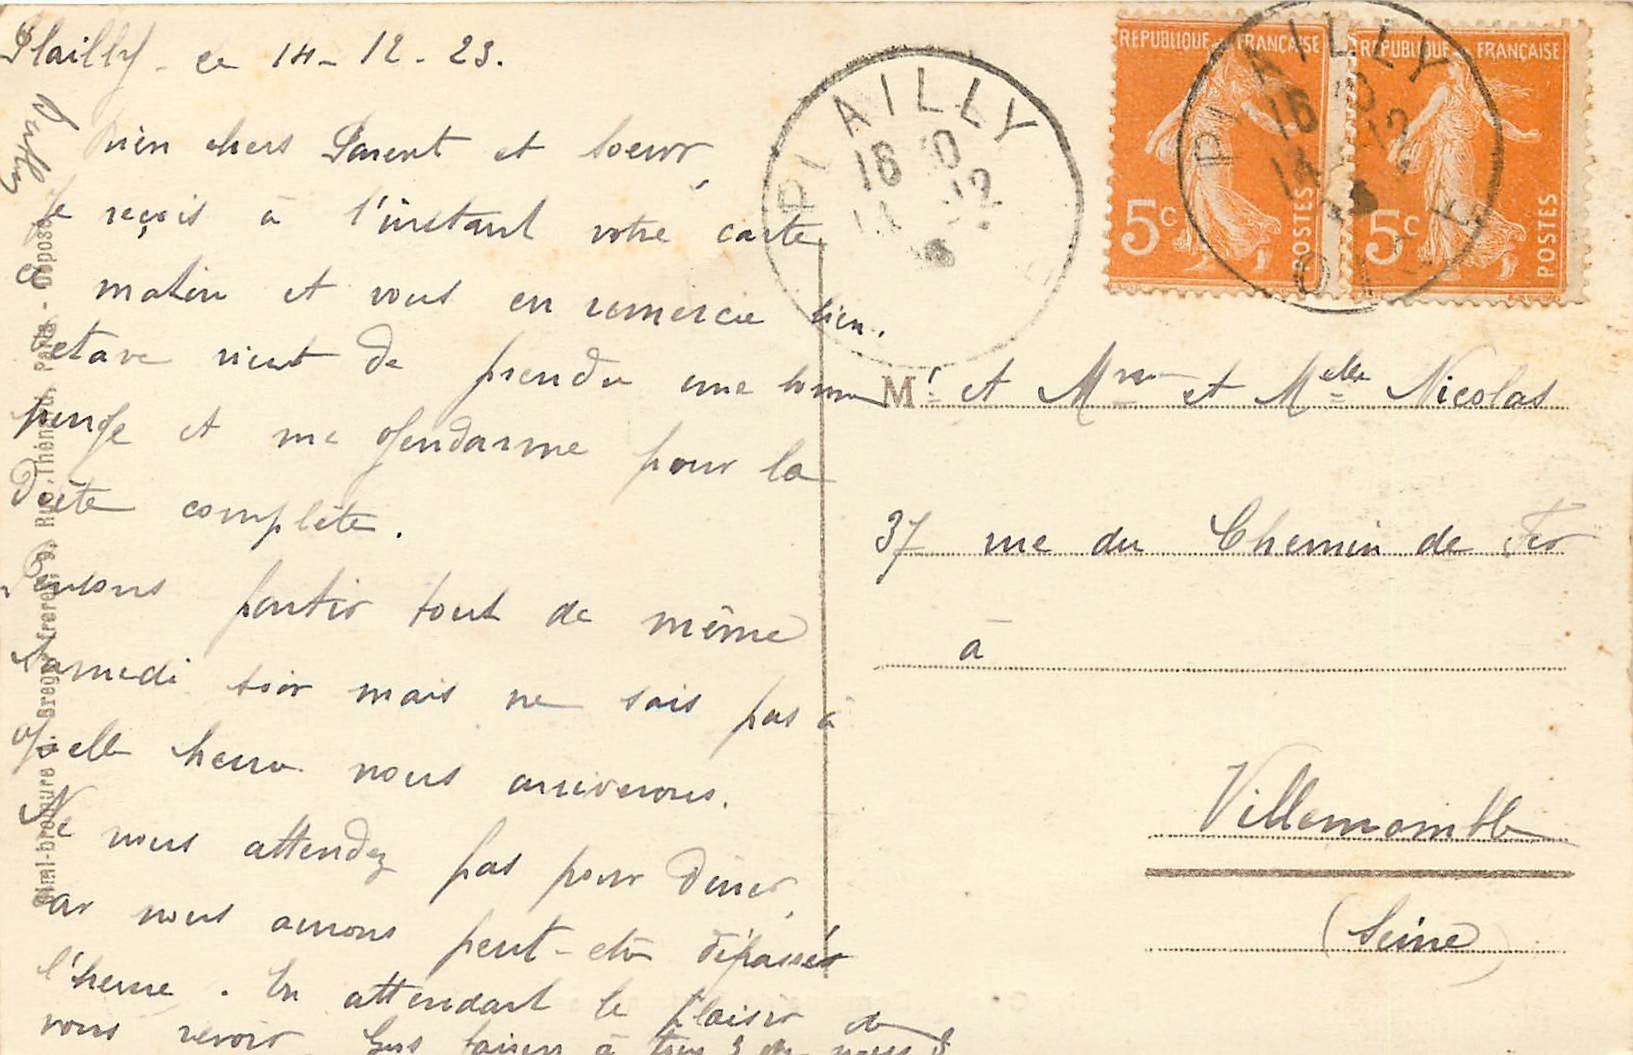 Plailly le 14-12-23.
Bien chers Parent et Soeur,
Je reçois à l'instant votre carte
ce matin et vous en remercie bien.
Octave vient de prendre une bonne
purge et me gendarme pour la
Diète complète.
Pensons partir tout de même
Samedi soir mais ne sais pas à
quelle heure nous arriverons.
Ne nous attendez pas pour Diner,
car nous aurons peut-etre dépassés
l'heure. En attendant le plaisir de
vous revoir. Gros à tous 3 de nous
PLAILLY
16 10
14 -12
REPUBLIQUE FRANÇAISE
5c POSTES
REPUBLIQUE FRANÇAISE
5c POSTES
PLAILLY
16 10
14 12
OISE
Mr et Mme et Melle Nicolas
37 rue du Chemin de Fer
à
Villemomble
(Seine)
Simi-bromure A. Breger frères, 9, Rue Thénard, Paris - Déposé